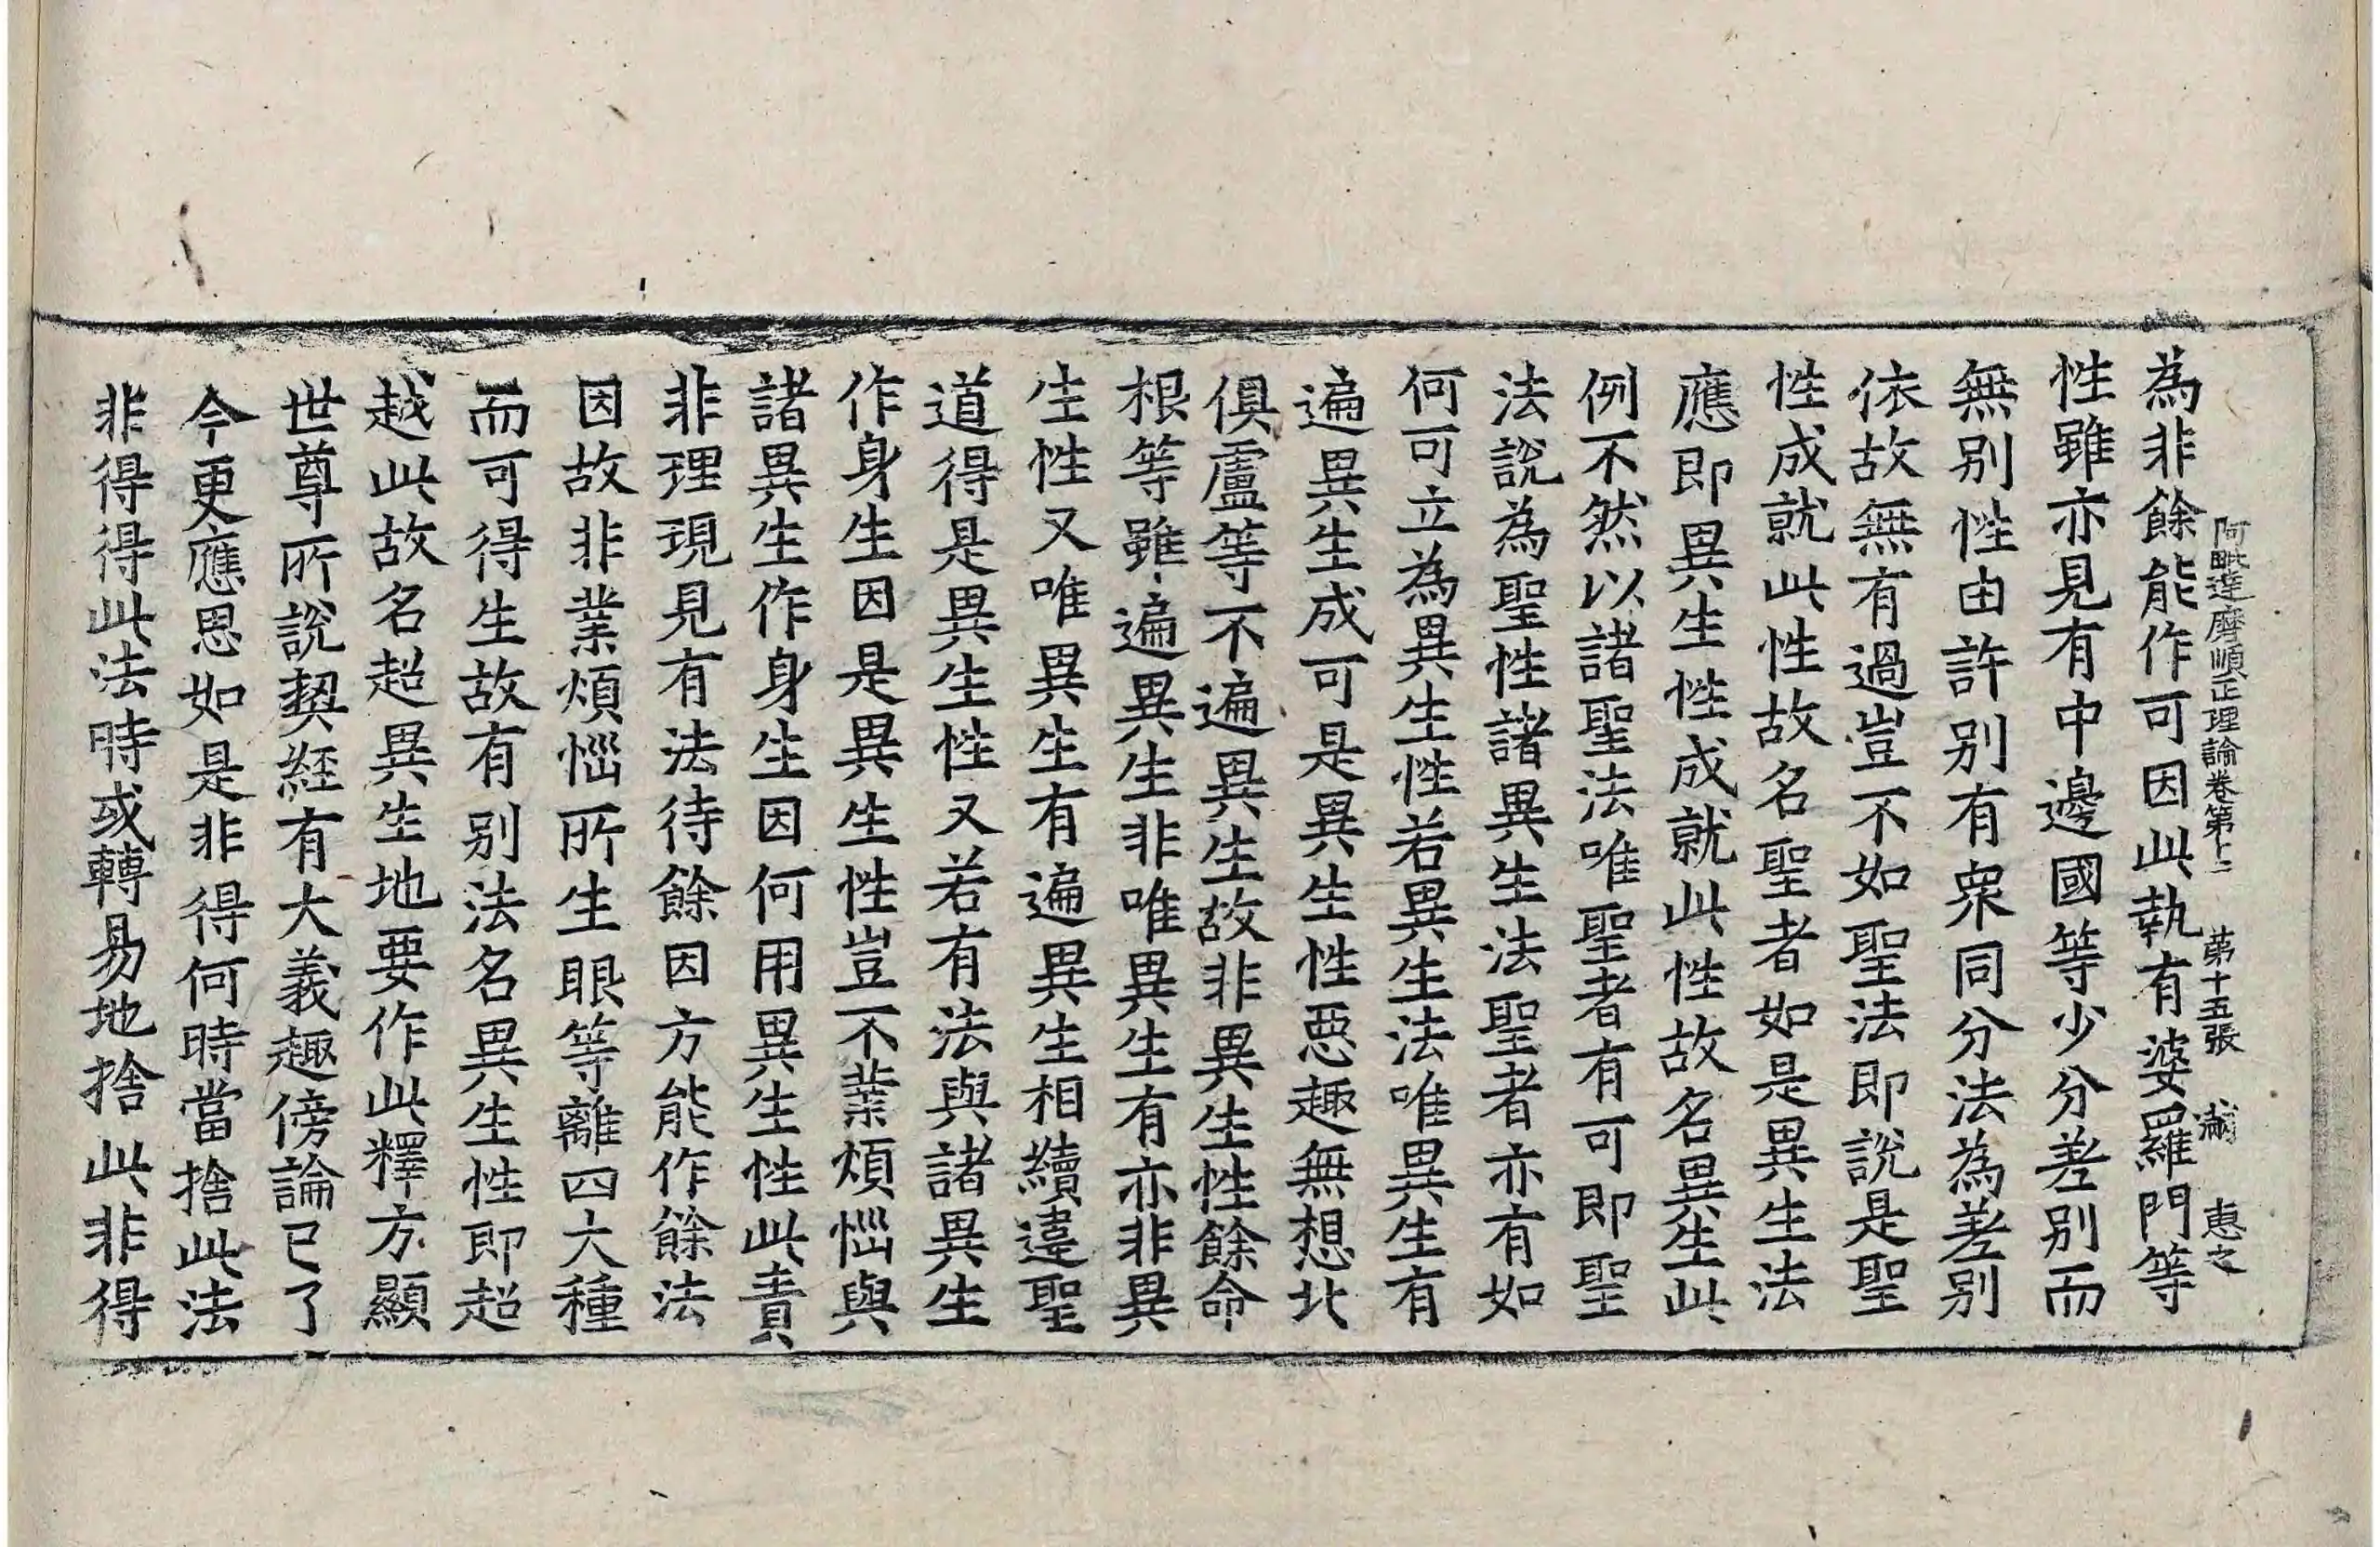 阿毗達磨順正理論卷第十二 第十五張 惠之
為非餘能作可因此執有婆羅門等
性雖亦見有中邊國等少分差別而
無別性由許別有衆同分法為差別
依故無有過豈不如聖法即說是聖
性成就此性故名聖者如是異生法
應即異生性成就此性故名異生此
例不然以諸聖法唯聖者有可即聖
法說為聖性諸異生法聖者亦有如
何可立為異生性若異生法唯異生有
遍異生成可是異生性惡趣無想北
俱盧等不遍異生故非異生性餘命
根等雖遍異生非唯異生有亦非異
生性又唯異生有遍異生相續違聖
道得是異生性又若有法與諸異生
作身生因是異生性豈不業煩惱與
諸異生作身生因何用異生性此責
非理現見有法待餘因方能作餘法
因故非業煩惱所生眼等離四大種
而可得生故有別法名異生性即超
越此故名超異生地要作此釋方顯
世尊所說契經有大義趣傍論已了
今更應思如是非得何時當捨此法
非得得此法時或轉易地捨此非得